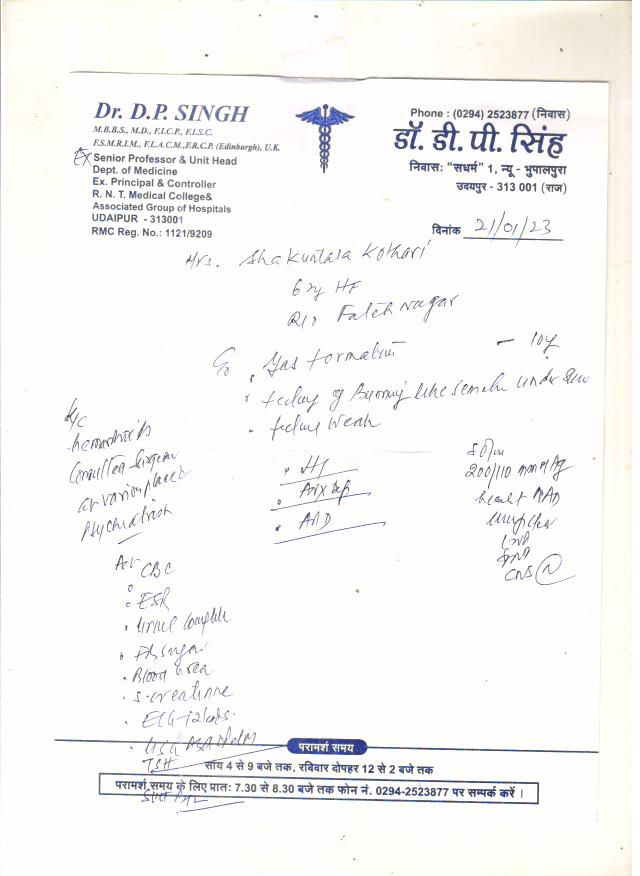 Dr. D.P. SINGH
M.B.B.S., M.D., F.I.C.P., F.I.S.C.
F.S.M.R.I.M., F.I.A.C.M.,F.R.C.P. (Edinburgh), U.K.
Ex Senior Professor & Unit Head
Dept. of Medicine
Ex. Principal & Controller
R. N. T. Medical College&
Associated Group of Hospitals
UDAIPUR - 313001
RMC Reg. No.: 1121/9209
Phone : (0294) 2523877 (निवास)
डॉ. डी. पी. सिंह
निवास: "सधर्म" 1, न्यू - भुपालपुरा
उदयपुर - 313 001 (राज)
दिनांक 21/01/23
Mrs. Shakuntala Kothari
R/o Fateh Nagar
Gas formation - 10y
feeling of Burning like under
feeling weak
hemorrhoids
Consulted Surgeon
at various places
Psychiatrist
200/110 mm Hg
CNS N
Adv CBC
ESR
Urine Complete
Blood Urea
S. creatinine
ECG-12 leads.
USG Abdomen
TSH
परामर्श समय
सांय 4 से 9 बजे तक, रविवार दोपहर 12 से 2 बजे तक
परामर्श समय के लिए प्रातः 7.30 से 8.30 बजे तक फोन नं. 0294-2523877 पर सम्पर्क करें ।